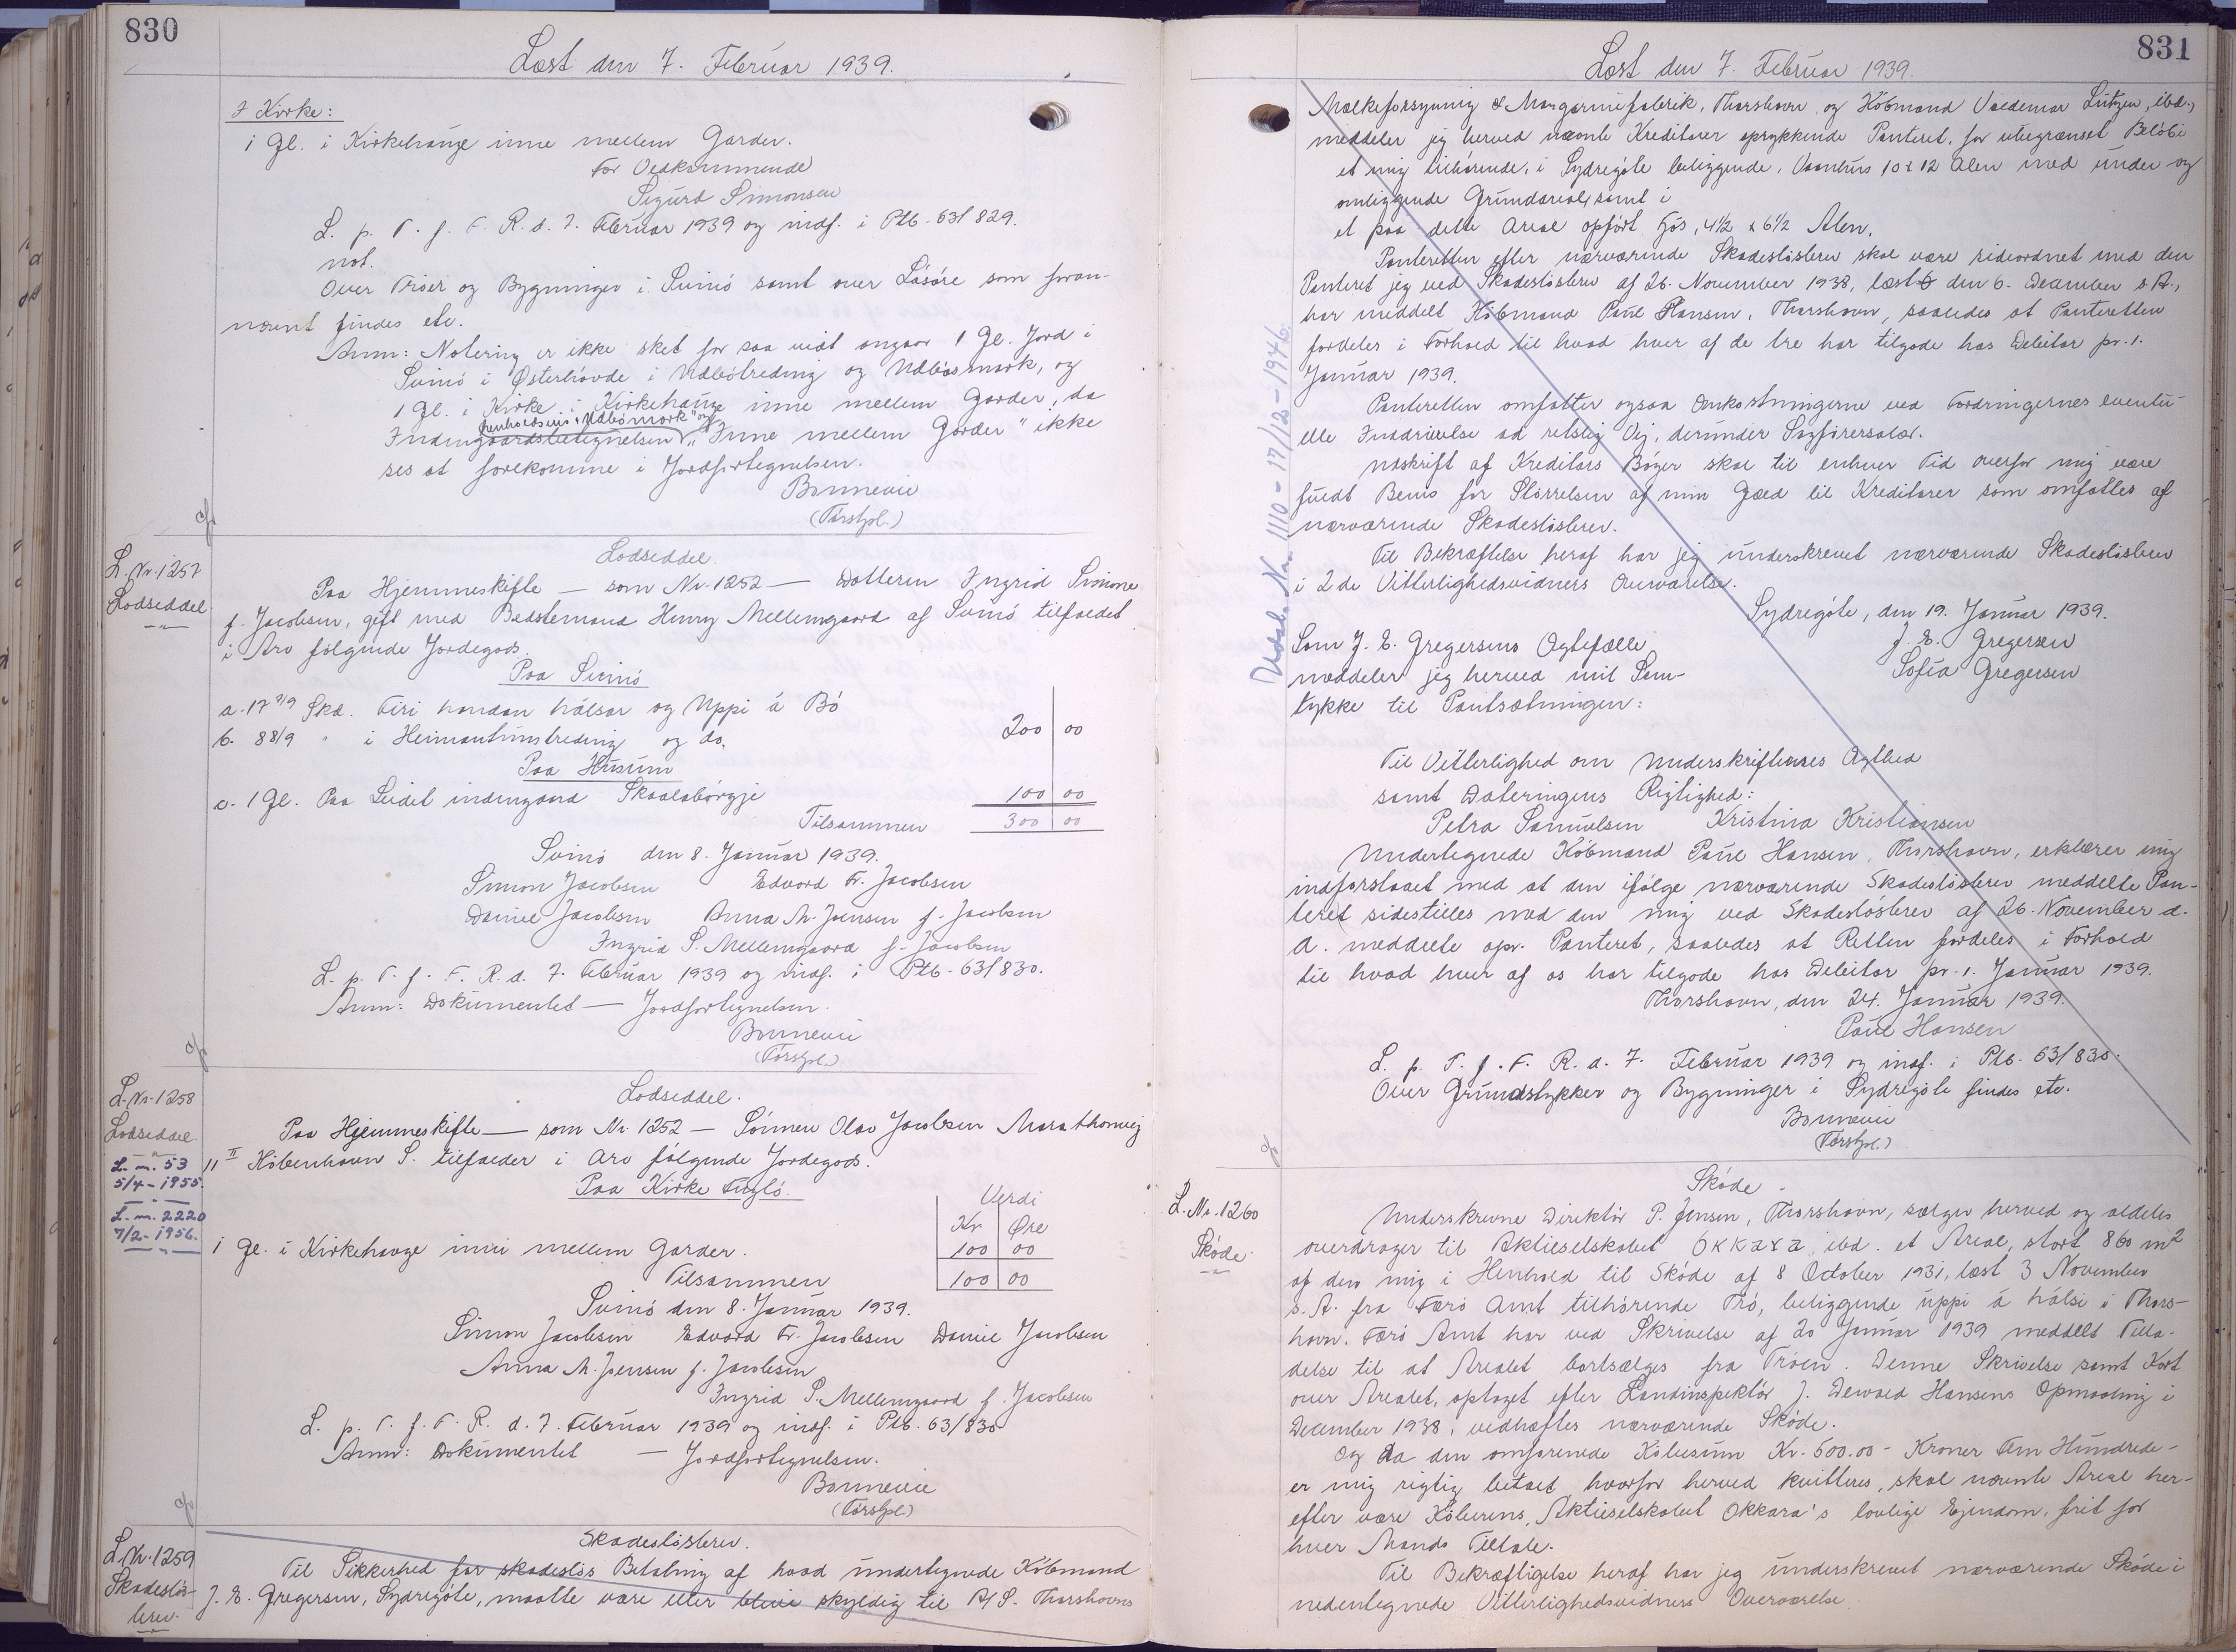 830
Læst den 7. Februar 1939.
I Kirke:
1 Gl. i Kirkehauge inne mellem Garder.
For Vedkommende
Sigurd Simonsen
L. p. T. f. F. R. d. 7. Februar 1939 og indf. i Ptb. 63/829.
not.
Over Tröer og Bygninger i Svinö samt over Lösöre som foran-
nævnt findes etc.
Anm: Notering er ikke sket for saa vidt angaar 1 Gl. Jord i
Svinö i Østerhövde i Udböbreding og Udbösmark, og
1 Gl. i Kirke i Kirkehauge inne mellem Garder, da
henholdsvis "Udbömark" og
Indengaardsbetegnelsen "Inne mellem Garder" ikke
ses at forekomme i Jordfortegnelsen.
Bonnevie
(Törstpl.)
L. Nr. 1257
Lodseddel
Lodseddel.
Paa Hjemmeskifte — som Nr. 1252 — Datteren Ingrid Simone
f. Jacobsen, gift med Bedstemand Henry Mellemgaard af Svinö tilfaldet
i Arv følgende Jordegods.
Paa Svinö
a. 17 7/9 Skd. Firi handan hálsar og Uppi á Bö
b. 8 8/9 " i Heimantúnsbreding og do. 200 00
Paa Húsum
c. 1 Gl. Paa Leidet indengaard Skaalabörgji 100 00
Tilsammen 300 00
Svinö den 8. Januar 1939.
Simon Jacobsen Edvard Fr. Jacobsen
Daniel Jacobsen Anna M. Joensen f. Jacobsen
Ingrid S. Mellemgaard f. Jacobsen
L. p. T. f. F. R. d. 7. Februar 1939 og indf. i Ptb. 63/830.
Anm: Dokumentet — Jordfortegnelsen.
Bonnevie
(Törstpl.)
L. Nr. 1258
Lodseddel
L. nr. 53
5/4-1955.
L. nr. 2220
7/2-1956.
Lodseddel.
Paa Hjemmeskifte — som Nr. 1252 — Sönnen Olav Jacobsen Marathonvej
11 II Köbenhavn S. tilfalder i Arv fölgende Jordegods.
Paa Kirke Fuglö.
Verdi
Kr Øre
1 Gl. i Kirkehauge inni mellem Garder. 100 00
Tilsammen 100 00
Svinö den 8. Januar 1939.
Simon Jacobsen Edvard Fr. Jacobsen Daniel Jacobsen
Anna M. Joensen f. Jacobsen
Ingrid S. Mellemgaard f. Jacobsen
L. p. T. f. F. R. d. 7. Februar 1939 og indf. i Ptb. 63/830
Anm: Dokumentet — Jordfortegnelsen.
Bonnevie
(Törstpl.)
L. Nr. 1259
Skadeslös-
brev.
Skadeslösbrev.
Til Sikkerhed for skadeslös Betaling af hvad undertegnede Köbmand
J. E. Gregersen, Sydregöte, maatte være eller blive skyldig til A/S. Thorshavns
831
Læst den 7. Februar 1939.
Mælkeforsyning & Margarinefabrik, Thorshavn og Köbmand Valdemar Lützen, ibd.,
meddeler jeg herved nævnte Kreditorer oprykkende Panteret, for ubegrænset Belöb i
et mig tilhörende, i Sydregöte beliggende, Vaanhus 10 x 12 Alen med under og
omliggende Grundareal, samt i
et paa dette Areal opfört Fjós, 4½ x 6½ Alen.
Panteretten efter nærværende Skadeslösbrev skal være sideordnet med den
Panteret jeg ved Skadeslösbrev af 26. November 1938, læst den 6. December s. A.,
har meddelt Köbmand Poul Hansen, Thorshavn, saaledes at Panteretten
fordeles i Forhold til hvad hver af de tre har tilgode hos Debitor pr. 1.
Januar 1939.
Panteretten omfatter ogsaa Omkostningerne ved Fordringernes eventu-
elle Inddrivelse ad retslig Vej, derunder Sagförersalær.
Udskrift af Kreditors Böger skal til enhver Tid overfor mig være
fuldt Bevis for Störrelsen af min Gæld til Kreditorer som omfattes af
nærværende Skadeslösbrev.
Til Bekræftelse heraf har jeg underskrevet nærværende Skadeslösbrev
i 2de Vitterlighedsvidners Overværelse.
Sydregöte, den 19. Januar 1939.
Som J. E. Gregersens Ægtefælle J. E. Gregersen
meddeler jeg herved mit Sam- Sofía Gregersen
tykke til Pantsætningen:
Til Vitterlighed om Underskriftens Ægthed
samt Dateringens Rigtighed:
Petra Samuelsen Kristina Kristiansen
Undertegnede Köbmand Poul Hansen, Thorshavn, erklærer mig
indforstaaet med at den ifölge nærværende Skadeslösbrev meddelte Pan-
teret sidestilles med den mig ved Skadeslösbrev af 26. November d.
A. meddelte opr. Panteret, saaledes at Retten fordeles i Forhold
til hvad hver af os har tilgode hos Debitor pr. 1. Januar 1939.
Thorshavn, den 24. Januar 1939.
Poul Hansen
L. p. T. f. F. R. d. 7. Februar 1939 og indf. i Ptb. 63/830.
Over Grundstykker og Bygninger i Sydregöte findes etc.
Bonnevie
(Törstpl.)
Udsl. Nr. 1110 - 17/12-1946.
L. Nr. 1260
Sköde.
Sköde.
Underskrevne Direktör P. Jensen, Thorshavn, sælger herved og aldeles
overdrager til Aktieselskabet Okkara, ibd. et Areal, stort 860 m2
af den mig i Henhold til Sköde af 8 October 1931, læst 3 November
s. A. fra Færö Amt tilhörende Trö, beliggende uppi á hálsi i Thors-
havn. Færö Amt har ved Skrivelse af 20 Januar 1939 meddelt Tilla-
delse til at Arealet bortsælges fra Tröen. Denne Skrivelse samt Kort
over Arealet, optaget efter Landinspektör J. Dewald Hansens Opmaaling i
December 1938, vedhæftes nærværende Sköde.
Og da den omforenede Köbesum Kr. 500.00 - Kroner Fem Hundrede -
er mig rigtig betalt hvorfor herved kvitteres, skal nævnte Areal her-
efter være Köberens, Aktieselskabet Okkara's lovlige Ejendom, frit for
hver Mands Tiltale.
Til Bekræftigelse heraf har jeg underskrevet nærværende Sköde i
nedentegnede Vitterlighedsvidners Overværelse.